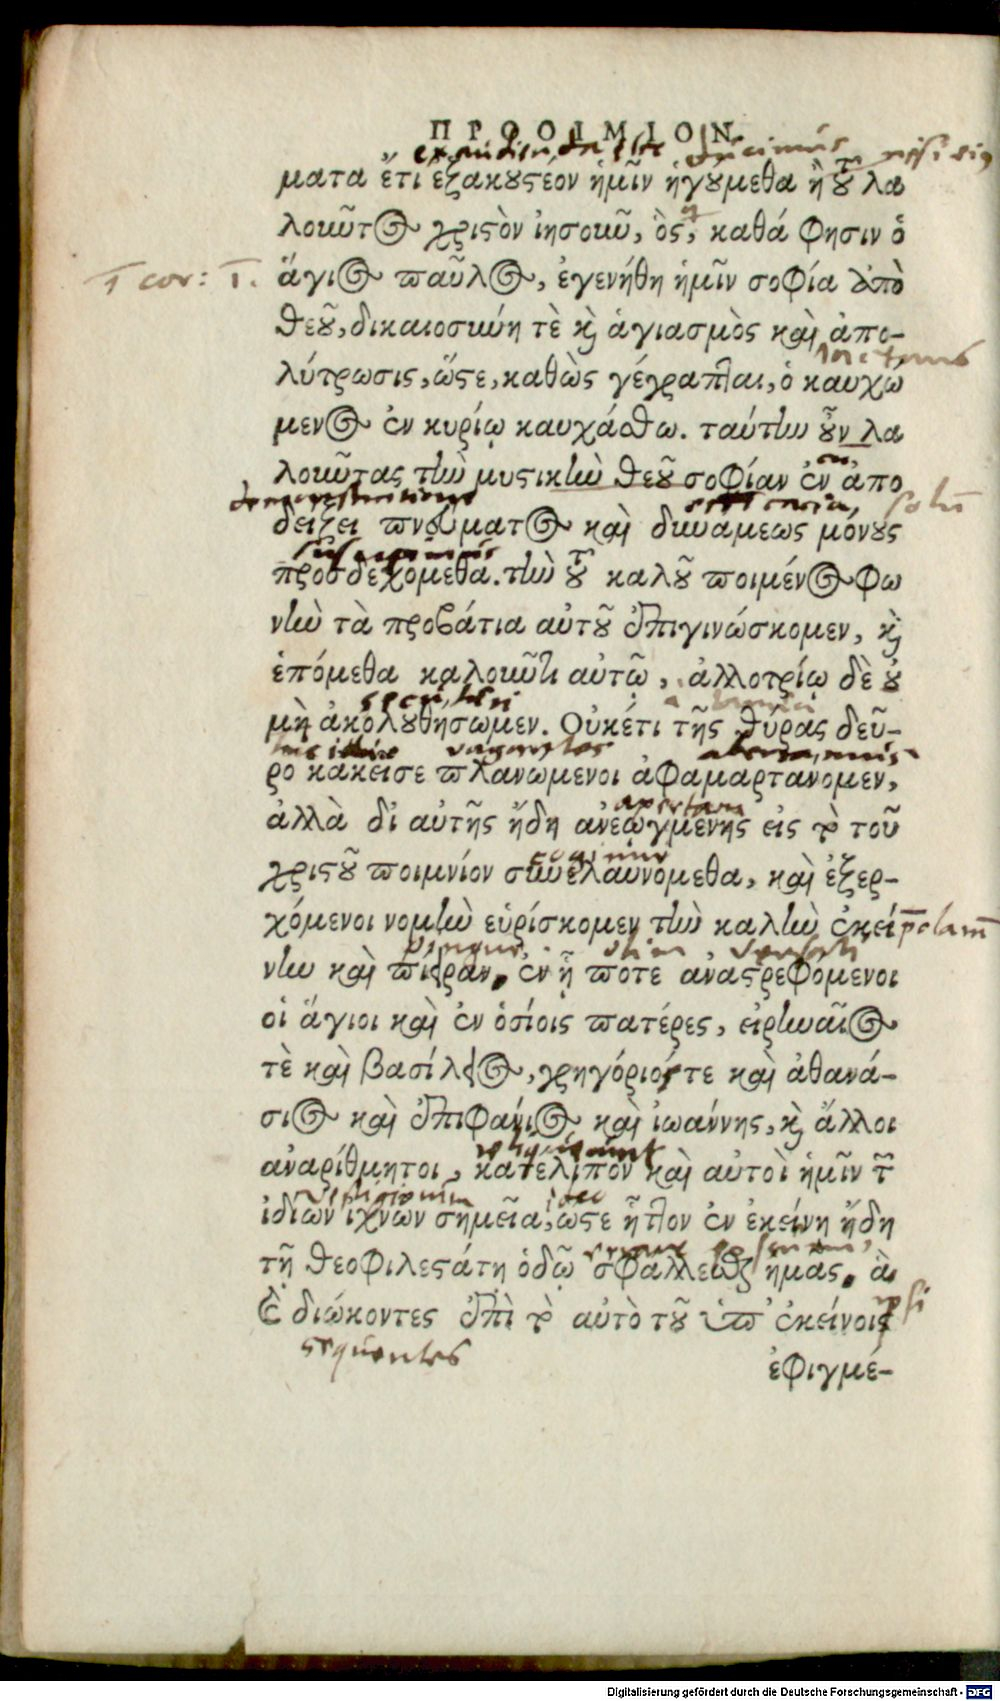 ΠΡΟΟΙΜΙΟΝ
ματα ἔτι ἐξακουστέον ἡμῖν ἡγούμεθα ἢ τοῦ λα
λοῦντος χριστὸν ἰησοῦν, ὃς, καθά φησιν ὁ
1 cor: 1.
ἅγιος παῦλος, ἐγενήθη ἡμῖν σοφία ἀπὸ
θεοῦ, δικαιοσύνη τὲ καὶ ἁγιασμὸς καὶ ἀπο-
λύτρωσις, ὥστε, καθὼς γέγραπται, ὁ καυχώ
μενος ἐν κυρίῳ καυχάσθω. ταύτην οὖν λα
λοῦντας τὴν μυστικὴν θεοῦ σοφίαν ἐν ἀπο
δείξει πνεύματος καὶ δυνάμεως μόνους
προσδεχόμεθα. τὴν τοῦ καλοῦ ποιμένος φω
νὴν τὰ προβάτια αὐτοῦ ἐπιγινώσκομεν, καὶ
ἑπόμεθα καλοῦντι αὐτῷ, ἀλλοτρίῳ δὲ οὐ
μὴ ἀκολουθήσωμεν. Οὐκέτι τῆς θύρας δεῦ-
vagantes
ρο κἀκεῖσε πλανώμενοι ἀφαμαρτάνομεν,
apertam
ἀλλὰ δι αὐτῆς ἤδη ἀνεῳγμένης εἰς τὸ τοῦ
χριστοῦ ποιμνίον συνελαυνόμεθα, καὶ ἐξερ-
χόμενοι νομὴν εὑρίσκομεν τὴν καλὴν ἐκεί
νην καὶ πιεραν, ἐν ᾗ ποτε ἀναστρεφόμενοι
οἱ ἅγιοι καὶ ἐν ὁσίοις πατέρες, εἰρηναῖος
τὲ καὶ βασίλειος, γρηγόριός τε καὶ ἀθανά-
σιος καὶ ἐπιφάνιος καὶ ἰωάννης, καὶ ἄλλοι
ἀναρίθμητοι, κατέλιπον καὶ αὐτοὶ ἡμῖν τῶν
ἰδίων ἰχνῶν σημεῖα, ὥστε ἧττον ἐν ἐκείνη ἤδη
τῇ θεοφιλεστάτη ὁδῷ σφάλλεσθαι ἡμᾶς, ἃ
καὶ διώκοντες ἐπὶ τὸ αὐτὸ τοῦ ὑπ' ἐκείνοις
sequentes
ἐφιγμέ-
Digitalisierung gefördert durch die Deutsche Forschungsgemeinschaft - DFG